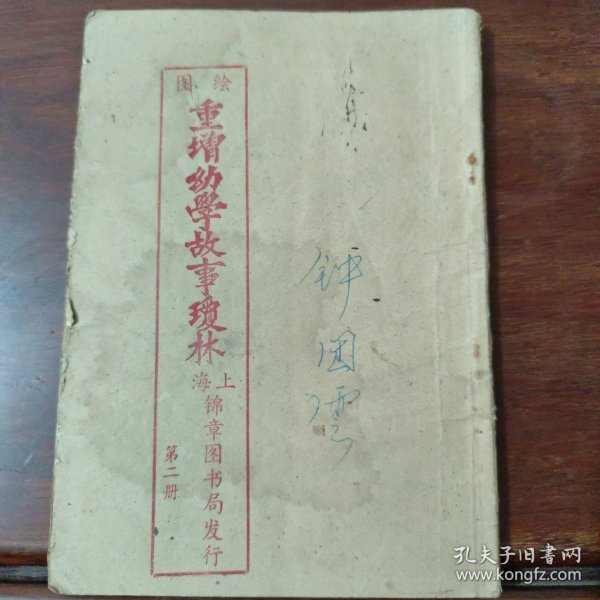 绘图
重增幼學故事瓊林
上海
锦章图书局发行
第二册
孔夫子旧书网
www.kongfz.com